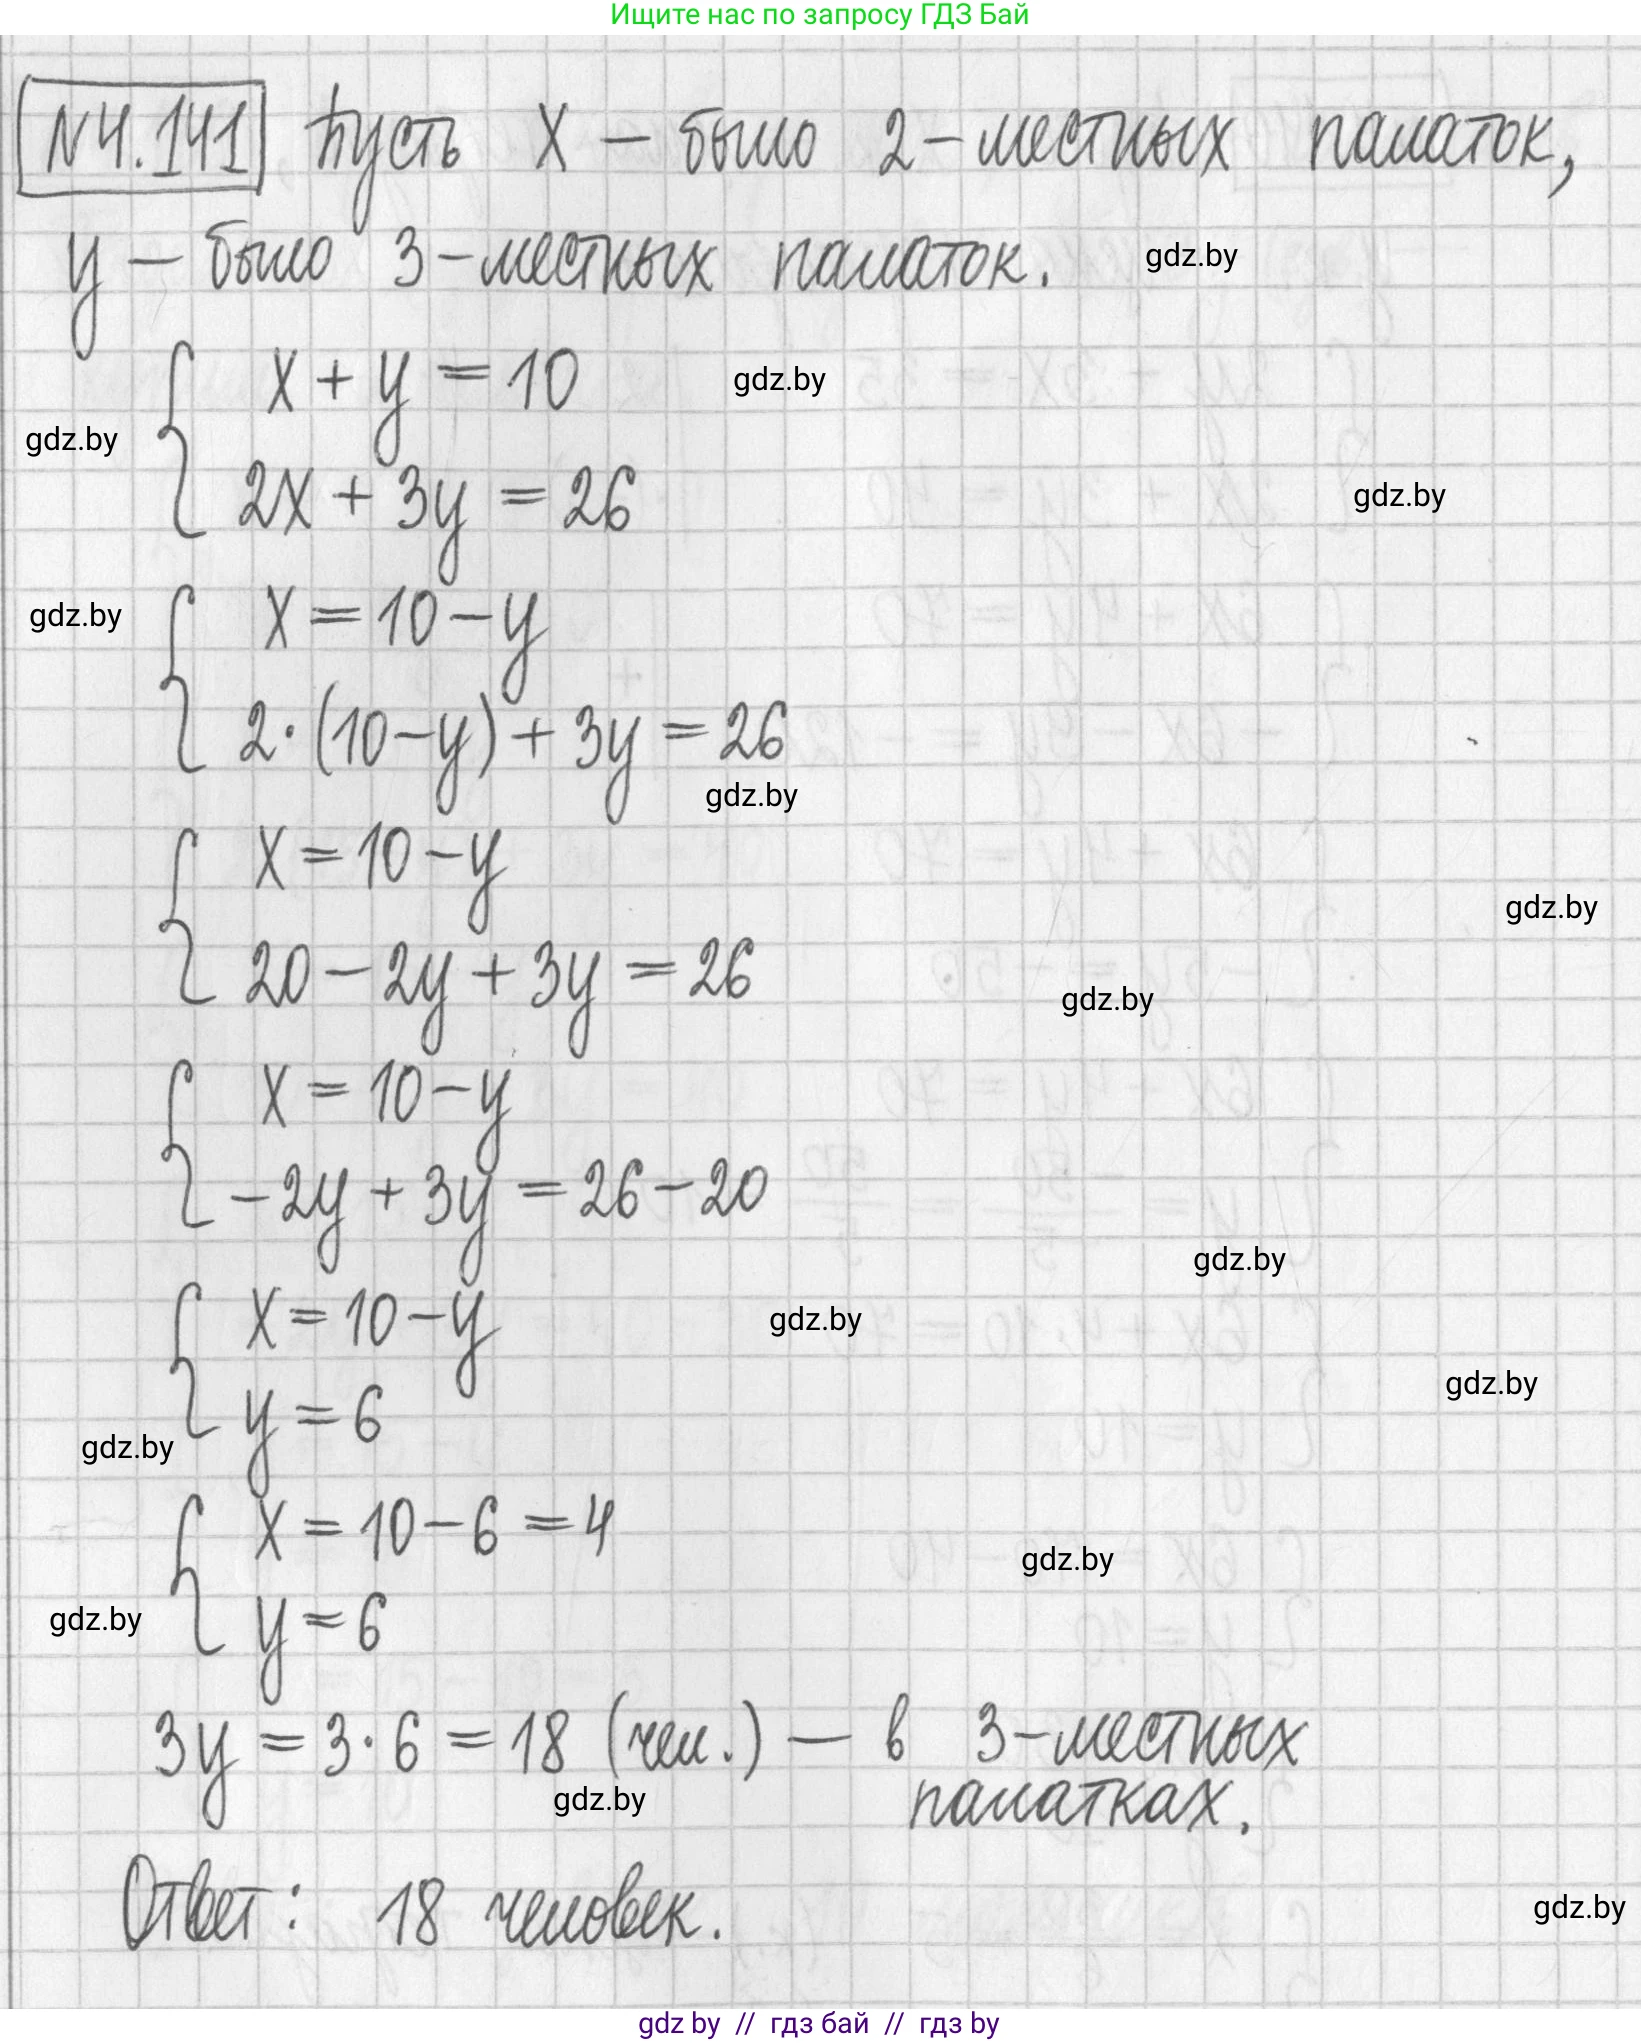 Ищите нас по запросу ГДЗ Бай
N4.141 Пусть x – было 2-местных палаток,
y – было 3-местных палаток. gdz.by
x + y = 10 gdz.by
gdz.by
2x + 3y = 26 gdz.by
gdz.by x = 10 – y
2·(10–y) + 3y = 26
gdz.by
x = 10 – y
gdz.by
20 – 2y + 3y = 26
gdz.by
x = 10 – y
–2y + 3y = 26 – 20
gdz.by
x = 10 – y gdz.by
gdz.by
y = 6
gdz.by
x = 10 – 6 = 4
gdz.by
gdz.by y = 6
3y = 3·6 = 18 (чел.) – в 3-местных
gdz.by палатках.
Ответ: 18 человек.
gdz.by
gdz by // гдз бай // гдз by